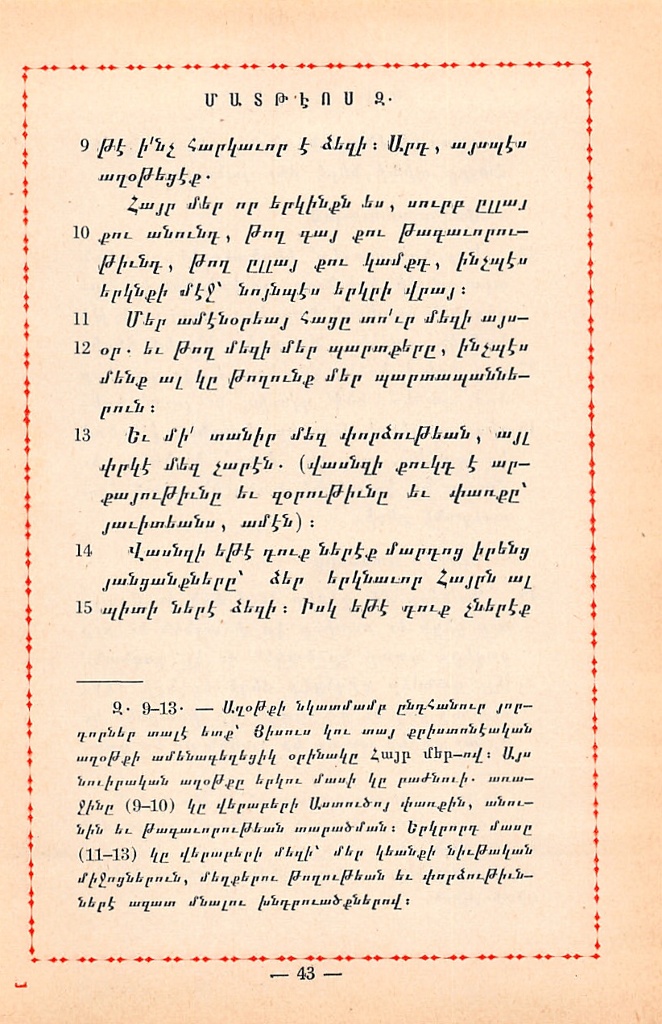 ՄԱՏԹԷՈՍ Զ.
9 թէ ի՛նչ հարկաւոր է ձեզի։ Արդ, այսպէս
աղօթեցէք.
Հայր մեր որ երկինքն ես, սուրբ ըլլայ
10 քու անունդ, թող գայ քու թագաւորու–
թիւնդ, թող ըլլայ քու կամքդ, ինչպէս
երկնքի մէջ՝ նոյնպէս երկրի վրայ։
11 Մեր ամէնօրեայ հացը տո՛ւր մեզի այս–
12 օր. եւ թող մեզի մեր պարտքերը, ինչպէս
մենք ալ կը թողունք մեր պարտապաննե–
րուն։
13 Եւ մի՛ տանիր մեզ փորձութեան, այլ
փրկէ մեզ չարէն. (վասնզի քուկդ է ար–
քայութիւնը եւ զօրութիւնը եւ փառքը՝
յաւիտեանս, ամէն)։
14 Վասնզի եթէ դուք ներէք մարդոց իրենց
յանցանքները՝ ձեր երկնաւոր Հայրն ալ
15 պիտի ներէ ձեզի։ Իսկ եթէ դուք չներէք
Զ. 9–13. — Աղօթքի նկատմամբ ընդհանուր յոր–
դորներ տալէ ետք՝ Յիսուս կու տայ քրիստոնէական
աղօթքի ամենագեղեցիկ օրինակը Հայր մեր–ով։ Այս
նուիրական աղօթքը երկու մասի կը բաժնուի. առա–
ջինը (9–10) կը վերաբերի Աստուծոյ փառքին, անու–
նին եւ թագաւորութեան տարածման։ Երկրորդ մասը
(11–13) կը վերաբերի մեզի՝ մեր կեանքի նիւթական
միջոցներուն, մեղքերու թողութեան եւ փորձութիւն–
ներէ ազատ մնալու խնդրուածքներով։
— 43 —